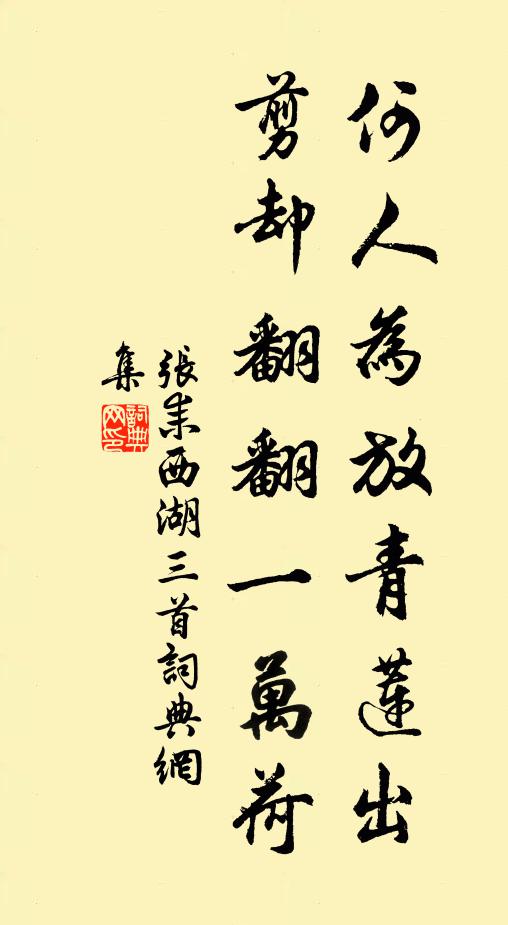 何人為放青蓮出
剪却翻翻一萬荷
張耒西湖三首詞典網
集
詞典
网印